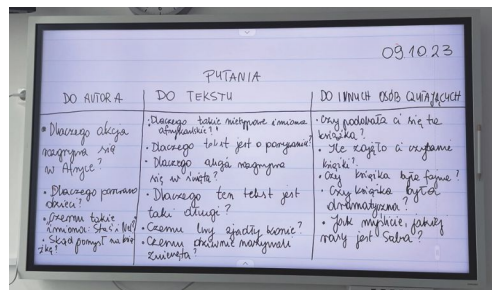 09.10.23
PYTANIA
DO AUTORA
• Dlaczego akcja
rozgrywa się
w Afryce?
• Dlaczego porwano
dzieci?
• Czemu takie
imiona: Staś i Nel?
• Skąd pomysł na książkę?
DO TEKSTU
• Dlaczego takie nietypowe imiona
afrykańskie?
• Dlaczego tekst jest o porwaniu?
• Dlaczego akcja rozgrywa
się w święta?
• Dlaczego ten tekst jest
taki długi?
• Czemu lwy zjadły konie?
• Czemu
zwierzęta?
DO INNYCH OSÓB CZYTAJĄCYCH
• Czy podobała ci się ta
książka?
• Ile zajęło ci czytanie
książki?
• Czy książka była fajna?
• Czy książka była
dramatyczna?
• Jak myślicie, jakiej
rasy jest Saba?